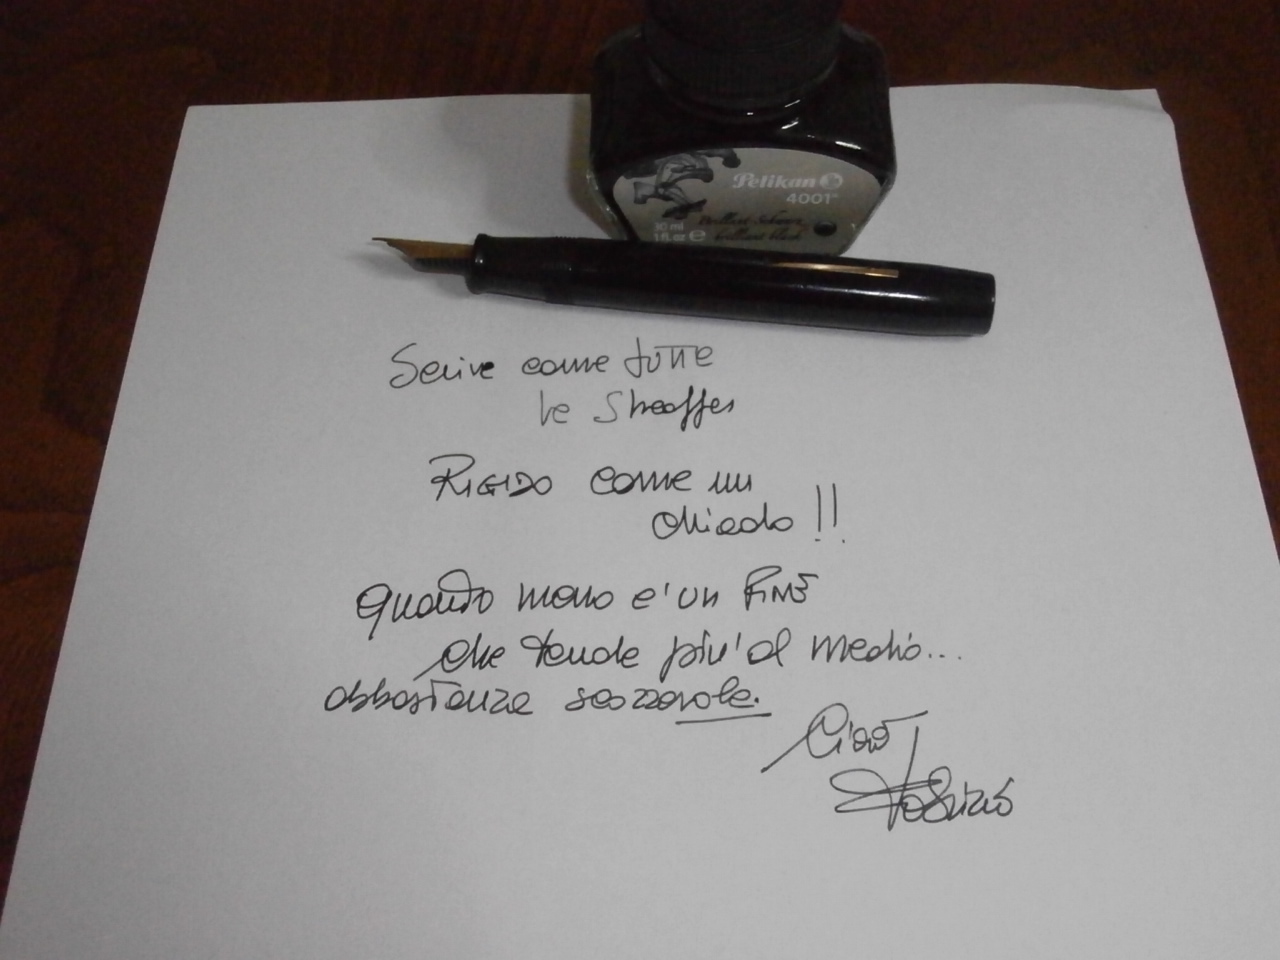 Pelikan
4001®
30 ml
1 fl.oz e
Brillant-Schwarz
brilliant black
Scrive come tutte
le Sheaffer
RIGIDO come un
chiodo!!
Quanto meno e' un FINE
che tende piu' al medio...
abbastanza scorrevole.
Ciao
Fabrizio